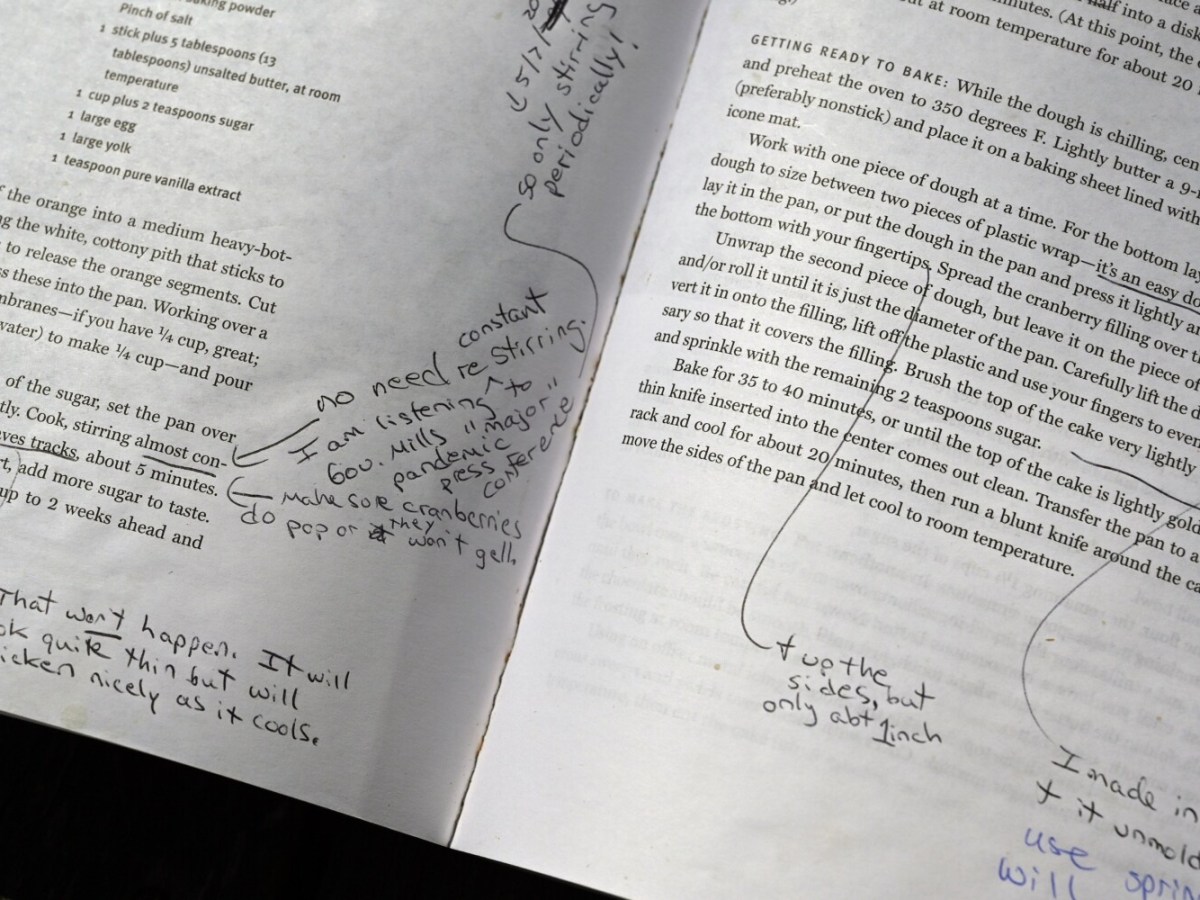 baking powder
Pinch of salt
1 stick plus 5 tablespoons (13
tablespoons) unsalted butter, at room
temperature
1 cup plus 2 teaspoons sugar
1 large egg
1 large yolk
1 teaspoon pure vanilla extract
the orange into a medium heavy-bot-
the white, cottony pith that sticks to
to release the orange segments. Cut
these into the pan. Working over a
membranes—if you have ¼ cup, great;
water) to make ¼ cup—and pour
of the sugar, set the pan over
Cook, stirring almost con-
tracks, about 5 minutes.
add more sugar to taste.
up to 2 weeks ahead and
5/7/20
so only stirring
periodically!
no need re constant
stirring.
I am listening to
Gov. Mills "major"
pandemic
press
conference
make sure cranberries
do pop or they
won't gell.
That won't happen. It will
quite thin but will
nicely as it cools.
half into a disk
minutes. (At this point, the
at room temperature for about 20
GETTING READY TO BAKE: While the dough is chilling,
and preheat the oven to 350 degrees F. Lightly butter a
(preferably nonstick) and place it on a baking sheet lined with
icone mat.
Work with one piece of dough at a time. For the bottom
dough to size between two pieces of plastic wrap—it's an easy
lay it in the pan, or put the dough in the pan and press it lightly
the bottom with your fingertips. Spread the cranberry filling over
Unwrap the second piece of dough, but leave it on the piece of
and/or roll it until it is just the diameter of the pan. Carefully lift the
vert it in onto the filling, lift off the plastic and use your fingers to
sary so that it covers the filling. Brush the top of the cake very lightly
and sprinkle with the remaining 2 teaspoons sugar.
Bake for 35 to 40 minutes, or until the top of the cake is lightly
thin knife inserted into the center comes out clean. Transfer the pan to a
rack and cool for about 20 minutes, then run a blunt knife around the
move the sides of the pan and let cool to room temperature.
+ up the
sides, but
only abt 1 inch
I made in
+ it
use
will